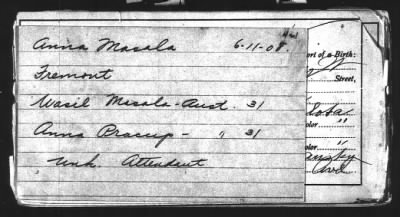 Anna Masala 6-11-08
Fremont
Wasil Masala - Aust. 31
Anna Prascup - " 31
Unk. Attendant
ort of a Birth:
Street,
olor "
olor "